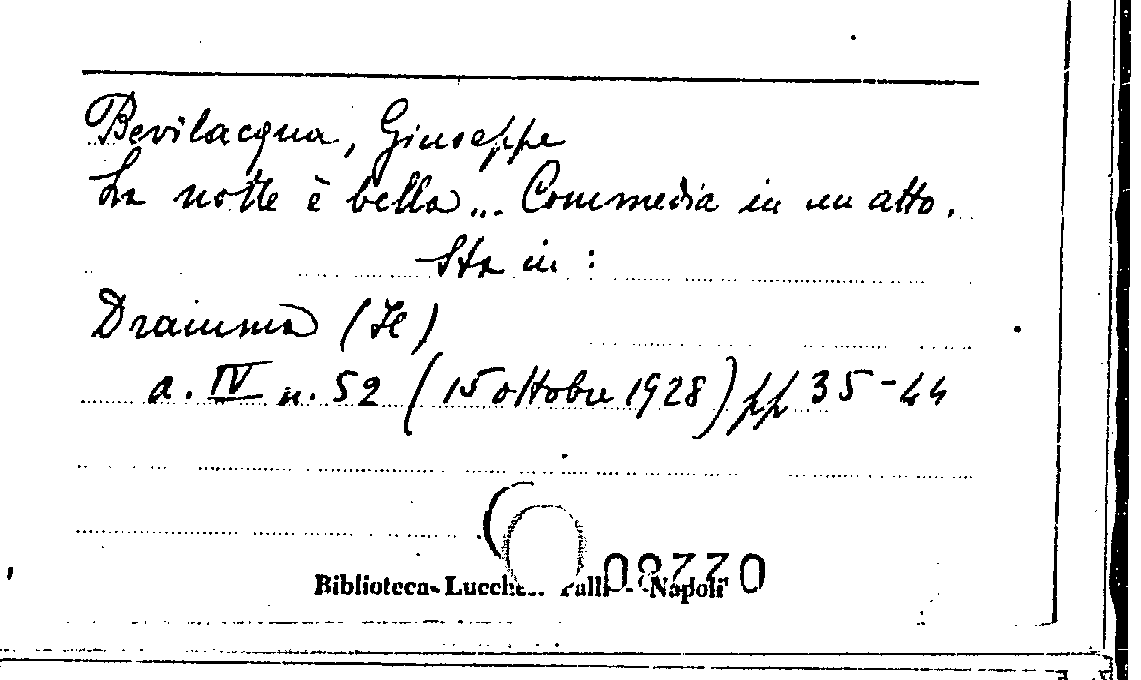 Bevilacqua, Giuseppe
La notte è bella... Commedia in un atto.
Sta in:
Dramma (Il)
a. IV n. 52 (15 ottobre 1928) pp 35-44
Biblioteca Lucchesi Palli - Napoli